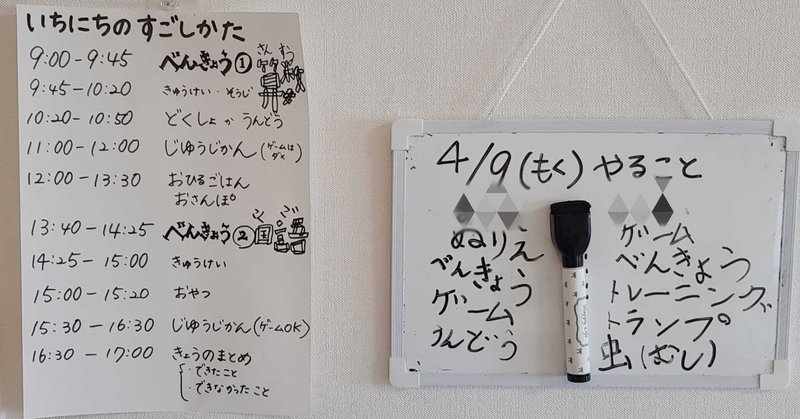 いちにちのすごしかた
9:00-9:45 べんきょう① さん すう 算数
9:45-10:20 きゅうけい・そうじ
10:20-10:50 どくしょ か うんどう
11:00-12:00 じゆうじかん(ゲームはダメ)
12:00-13:30 おひるごはん
おさんぽ
13:40-14:25 べんきょう② こく ご 国語
14:25-15:00 きゅうけい
15:00-15:20 おやつ
15:30-16:30 じゆうじかん(ゲームOK)
16:30-17:00 きょうのまとめ
・できたこと
・できなかったこと
4/9(もく) やること
ぬりえ
べんきょう
ゲーム
うんどう
ゲーム
べんきょう
トレーニング
トランプ
虫(むし)